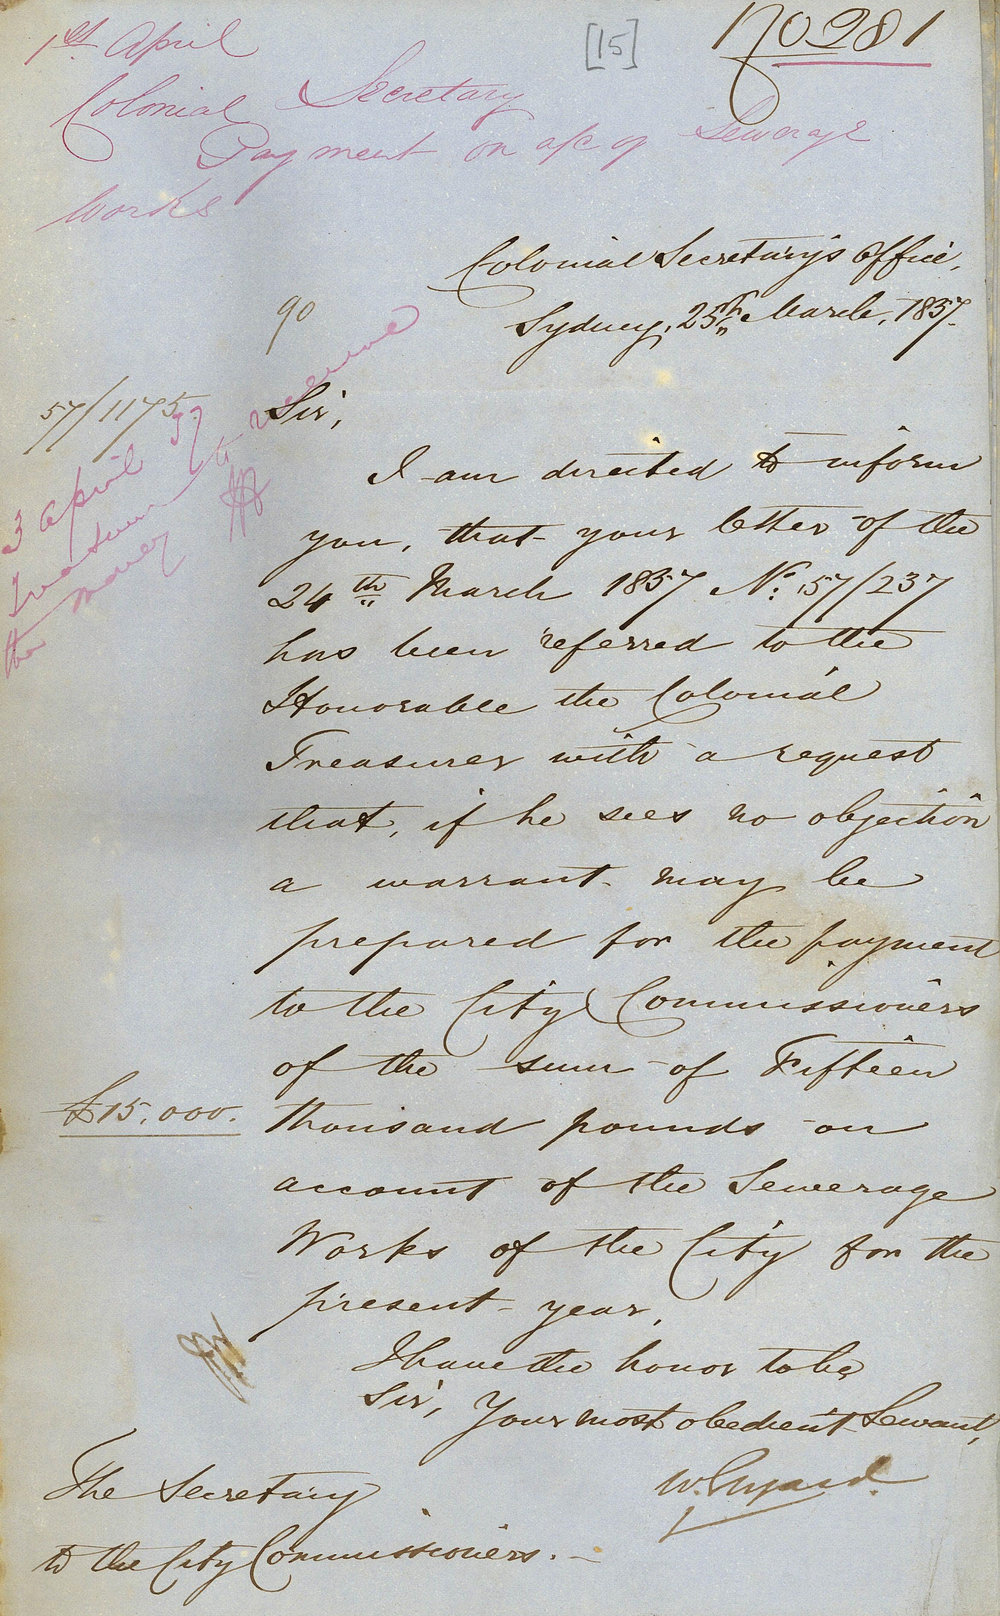 1st April
[15]
No 281
Colonial Secretary
Payment on a/c of Sewerage
Works
Colonial Secretary's Office,
Sydney, 25th March, 1857.
90
57/1175.
Sir,
3 April 57
the money to revenue
I am directed to inform
you, that your letter of the
24th March 1857 No. 57/237
has been referred to the
Honorable the Colonial
Treasurer with a request
that, if he sees no objection
a warrant may be
prepared for the payment
to the City Commissioners
of the sum of Fifteen
£15,000.
thousand pounds on
account of the Sewerage
Works of the City for the
present year,
I have the honor to be
Sir, Your most obedient Servant,
W. Elyard.
The Secretary
to the City Commissioners.